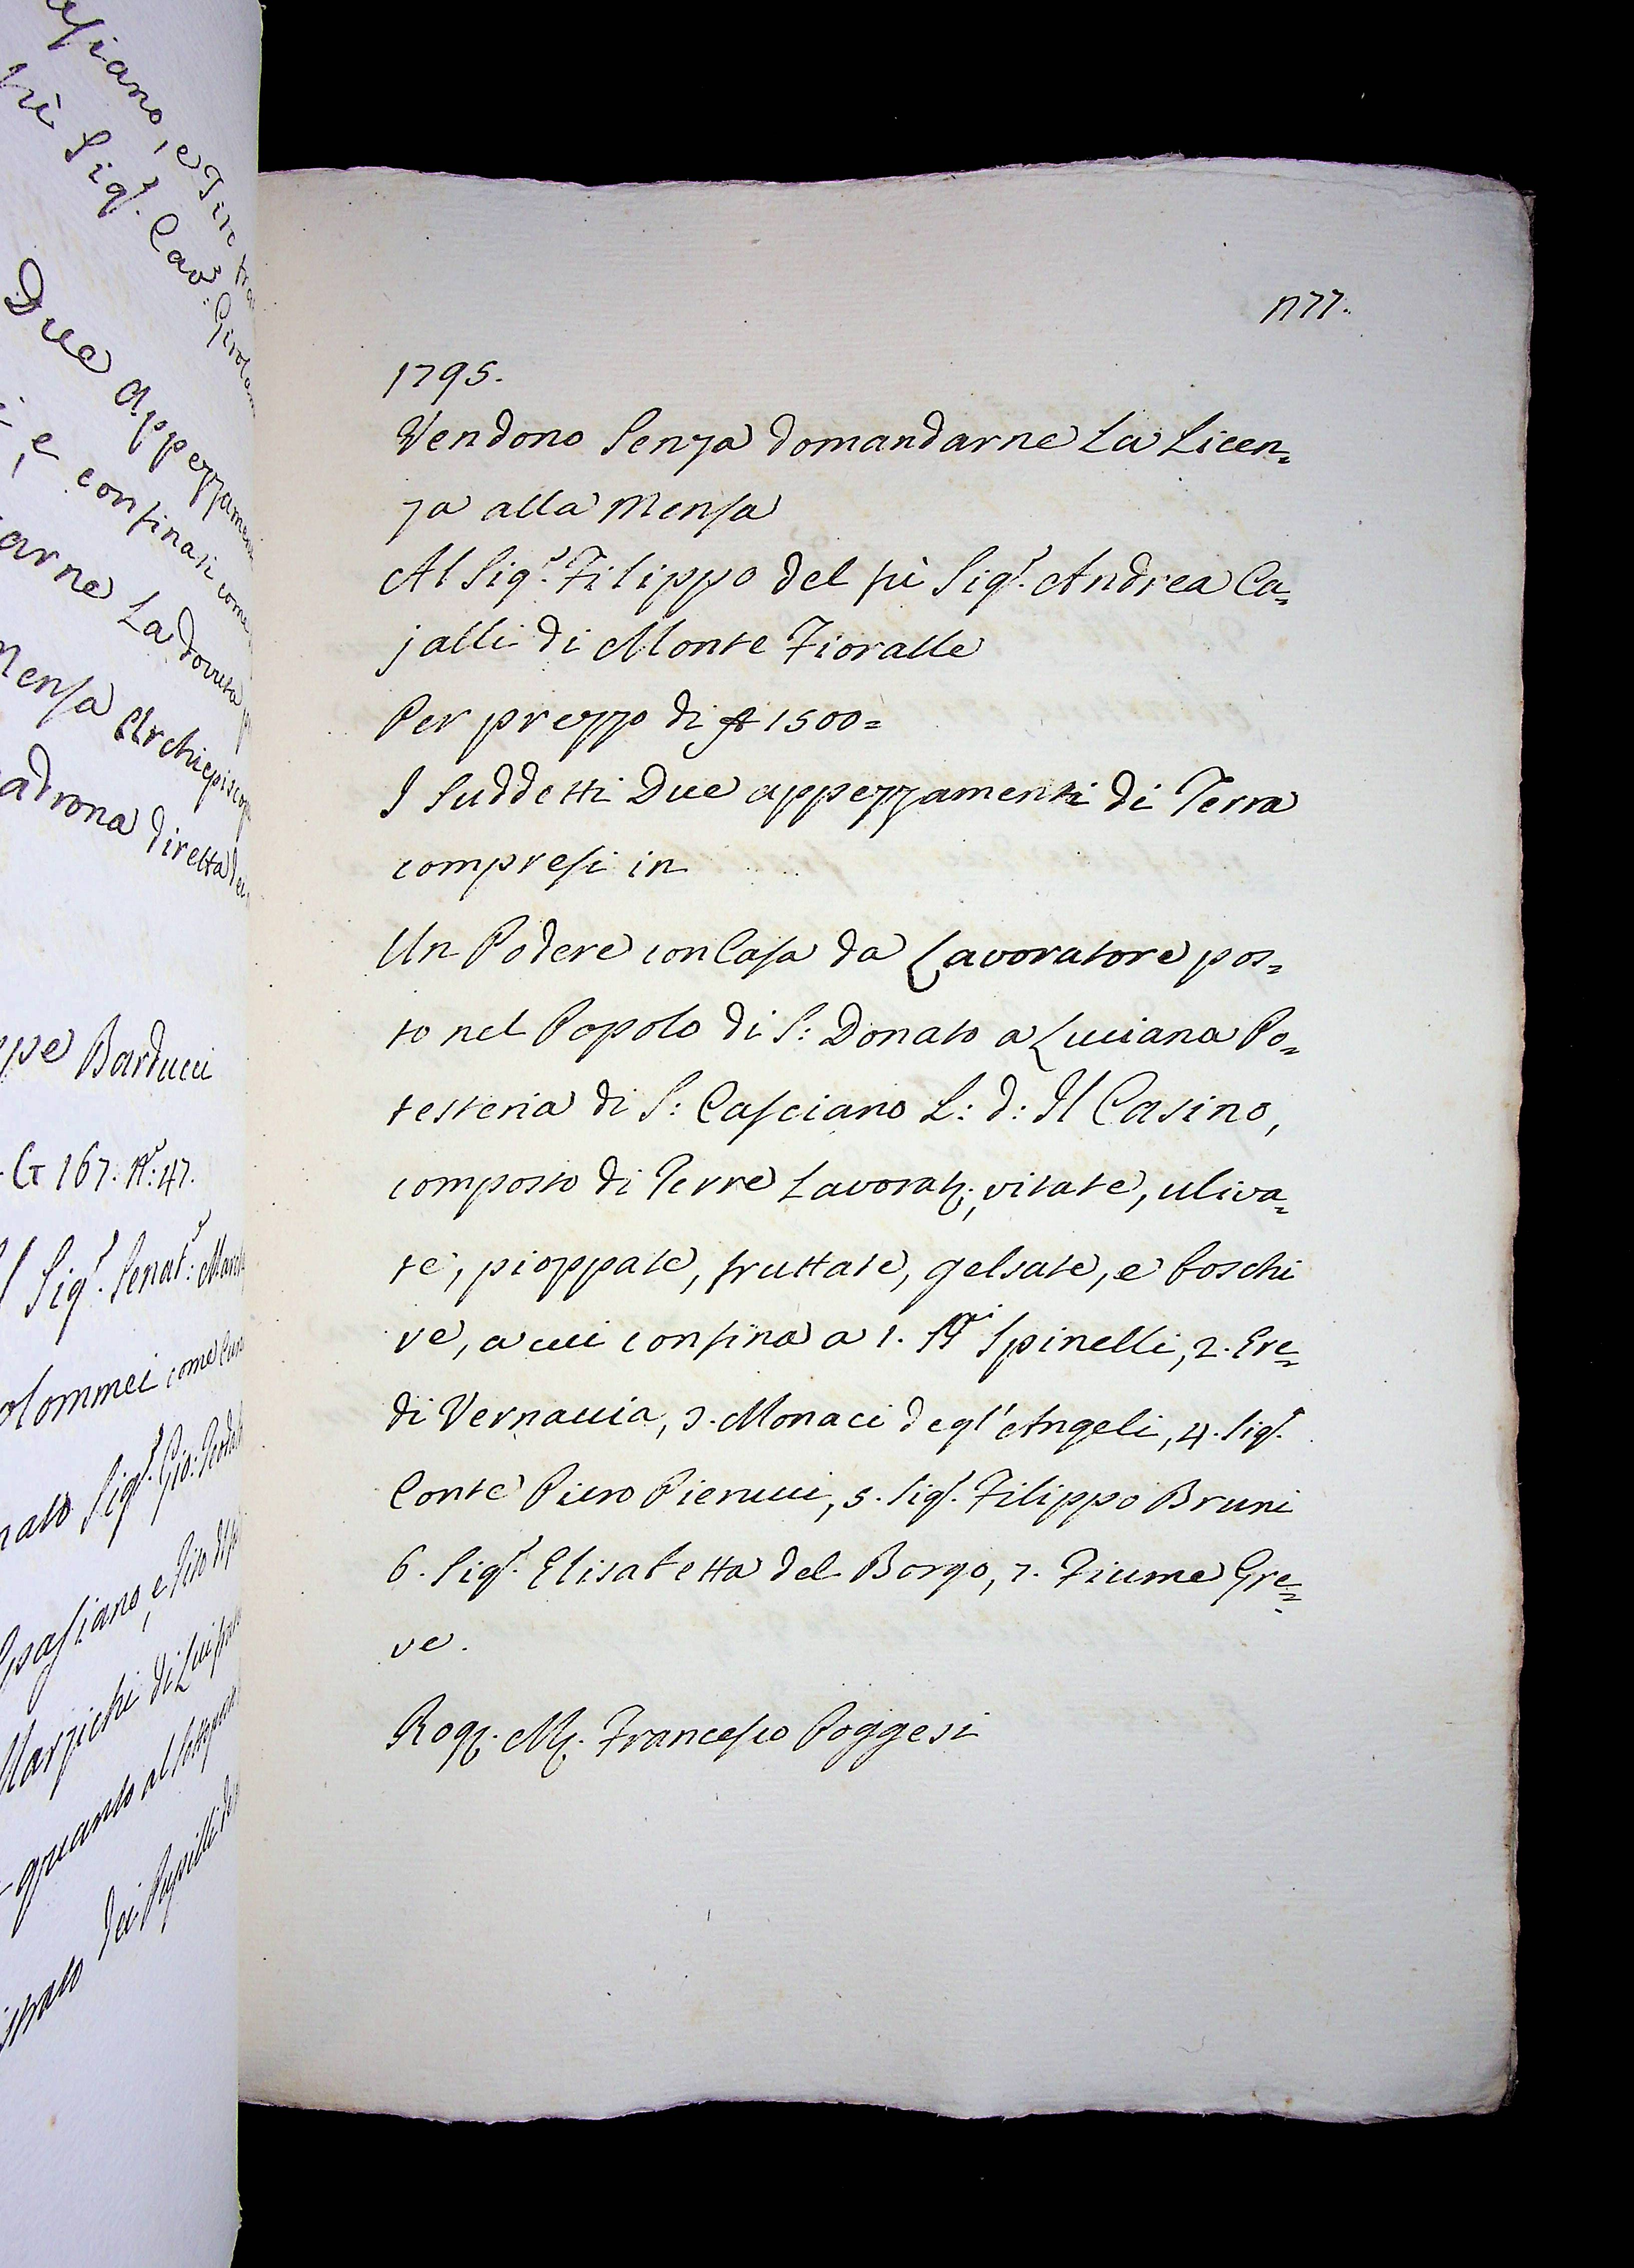 usiano, e Tir
fù Sig.r Cav.r Girolam
Due appezzamen
e confinati come
arne La dovuta
Mensa Archiepiscop
adrona diretta
ppe Barducci
G 167. N.o: 47.
Sig.r Senat.r: March
olommei come
nato Sig.r Gio:
Marzichi di Lui
quanto al
dei Pupilli
1177.
1795.
Vendono Senza domandarne La Licen=
za alla Mensa
Al Sig.r Filippo del fù Sig.r Andrea Ca=
jalli di Monte Fioralle
Per prezzo di 1500=
I Suddetti Due appezzamenti di Terra
compresi in
Un Podere con Casa da Lavoratore pos=
to nel Popolo di S: Donato a Luciana Po=
testeria di S: Casciano L: d: Il Casino,
composto di Terre Lavorat:, vitate, uliva=
te, pioppate, fruttate, gelsate, e boschi
ve, a cui confina a 1. SS.ri Spinelli, 2. Ere=
di Vernaccia, 3. Monaci degl' Angeli, 4. Sig.r
Conte Piero Pierucci, 5. Sig.r Filippo Bruni
6. Sig.r Elisabetta del Borgo, 7. Fiume Gre=
ve.
Rog. M. Francesco Poggesi